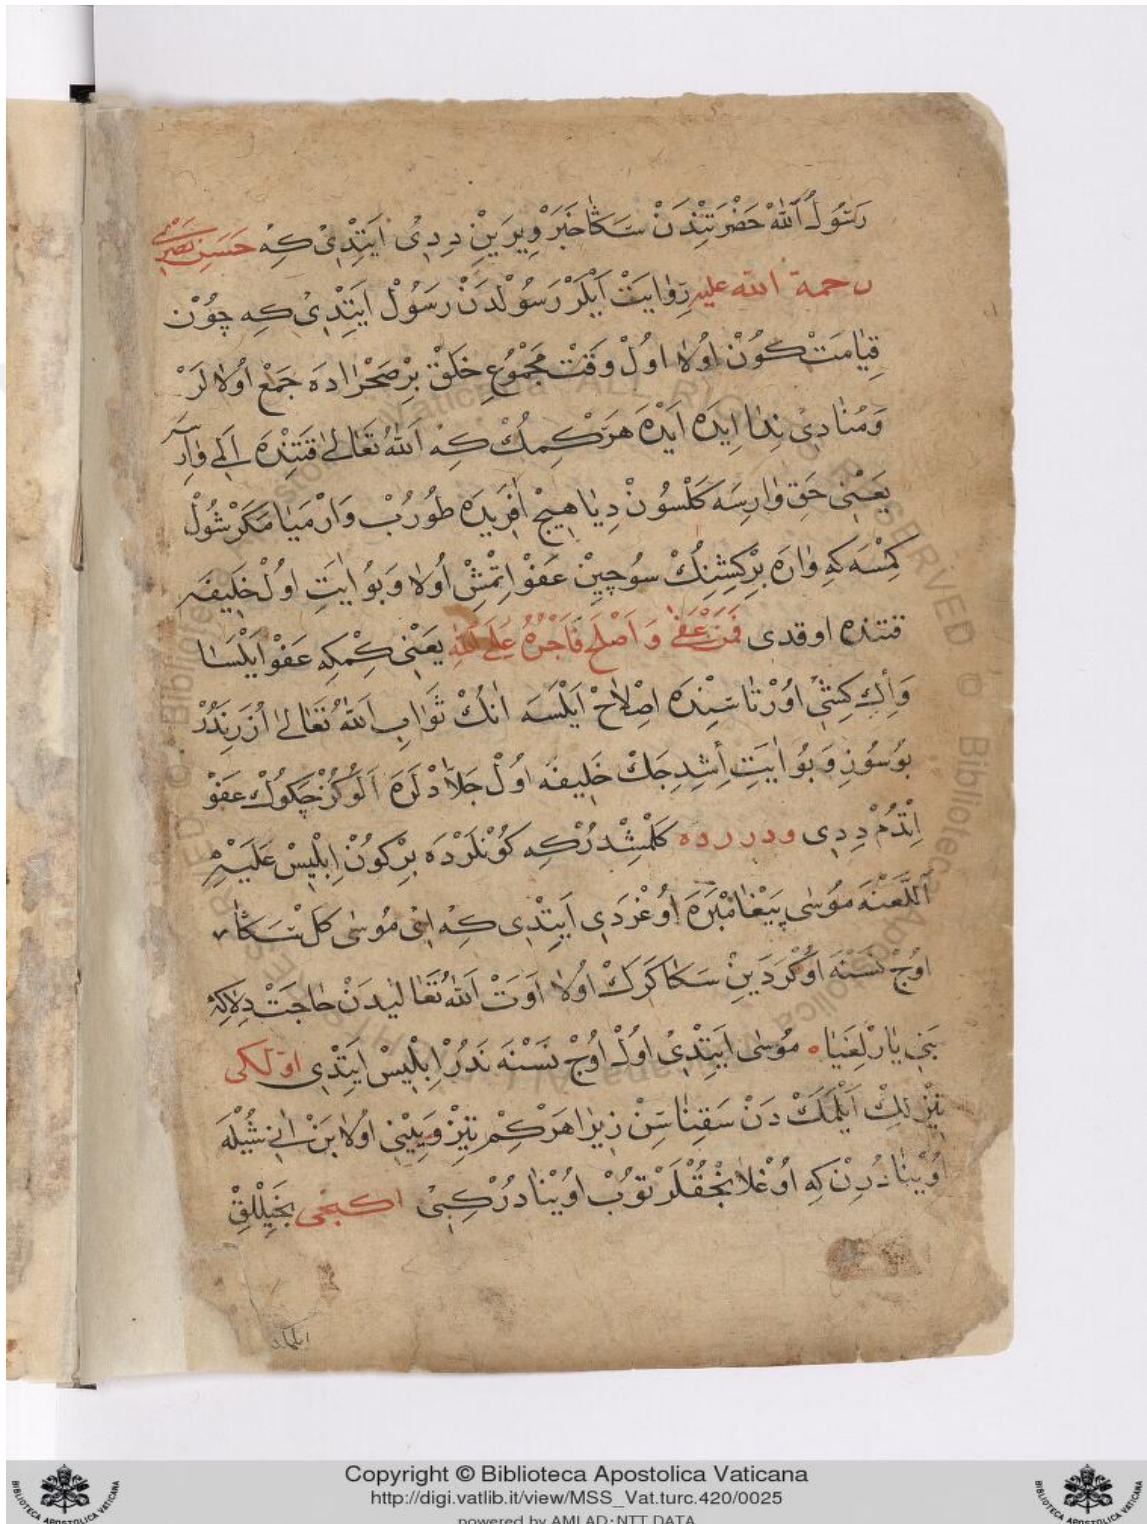 رَسُولُ اللّٰهْ حَضْرَتِنْدَنْ سَكَا خَبَرْ وِيرَيِنْ دِدِى اَيِتْدِىْ كِهْ حَسَنِ بَصْرِى
رحمة الله عليه رِوَايَتْ اَيْلَرْ رَسُولْدَنْ رَسُولْ اَيِتْدِىْ كِه چُوْنْ
قِيَامَتْ كُوْنْ اُولَا اوُلْ وَقْتْ مَجْمُوعِ خَلَقْ بِرْ صَحْرَادَه جَمْعْ اُولَالَرْ
وَمُنَادِىْ نِدَا اِيدَه اَيْدَه هَرْ كِمُكْ كِهْ اَللّٰهُ تَعَالٰى قَتِنْدَه اَلِى وَارْ
يَعْنِى حَقِ وَارِسَه كَلْسُونْ دِيَا هِيچْ اٰفَرِيدَه طُورُبْ وَارْمَيَا مَكَرْ شُولْ
كِمْسَه كِهِ وَارَه بِرْ كِشِنِكْ سُوچِيِنْ عَفْوْ اِتْمِشْ اُولَا وَبُو اٰيَتِ اوُلْ خَلِيفَه
قتنده اوقدى فَمَنْ عَفٰى وَاَصْلَحَ فَاَجْرُهُ عَلَى اللّٰهِ يَعْنِى كِمْكِه عَفْوْ اَيْلَسَا
وَاِكِ كِشِىْ اوُرْتَاسِنْدَه اِصْلَاحْ اَيْلَسَه اَنُكْ ثَوَابِ اَللّٰهُ تَعَالٰى اُزَرِنَدُرْ
بُوسُوزِ وَبُو اٰيَتِ اِشِدِجَكْ خَلِيفَه اوُلْ جَلَّادْلَرَه اَلُوكُزْ چَكُوكْ عَفْوْ
اِتْدُمْ دِدِى ودر روه كَلْمِشْدُرْكِه كُوْنْلَرْدَه بِرْ كُوْنْ اِبْلِيسْ عَلَيْهِ
اَللَّعْنَه مُوسٰى پَيْغَامْبَرَه اوُغْرَدِى اَيِتْدِى كِهْ اِىْ مُوسٰى كَلْ سَكَا
اوُجْ نَسْنَه اوُكْرَدَيِنْ سَكَا كَرَكْ اُولَا اَوَتْ اَللّٰهُ تَعَالٰيدَنْ حَاجَتْ دِلَاكِه
بَنِى يَارْلِغَيَا ه مُوسٰى اَيِتْدِىْ اوُلْ اوُجْ نَسْنَه نَدُرْ اِبْلِيسْ اَيِتْدِى اوّلكى
تِيزْلِكْ اَيْلَمَكْدَنْ سَقِنَاسِنْ زِيرَا هَرْ كِمْ تِيزْ وَيِينِى اُولَا بَنْ اَنِى شُيْلَه
اُوْيْنَادُرِنْ كِه اوُغْلَانْجُقْلَرْ توُبْ اوُيْنَادُرْ كِبِىْ اكبخى بَخِيلْلِقْ
ايلمكدن